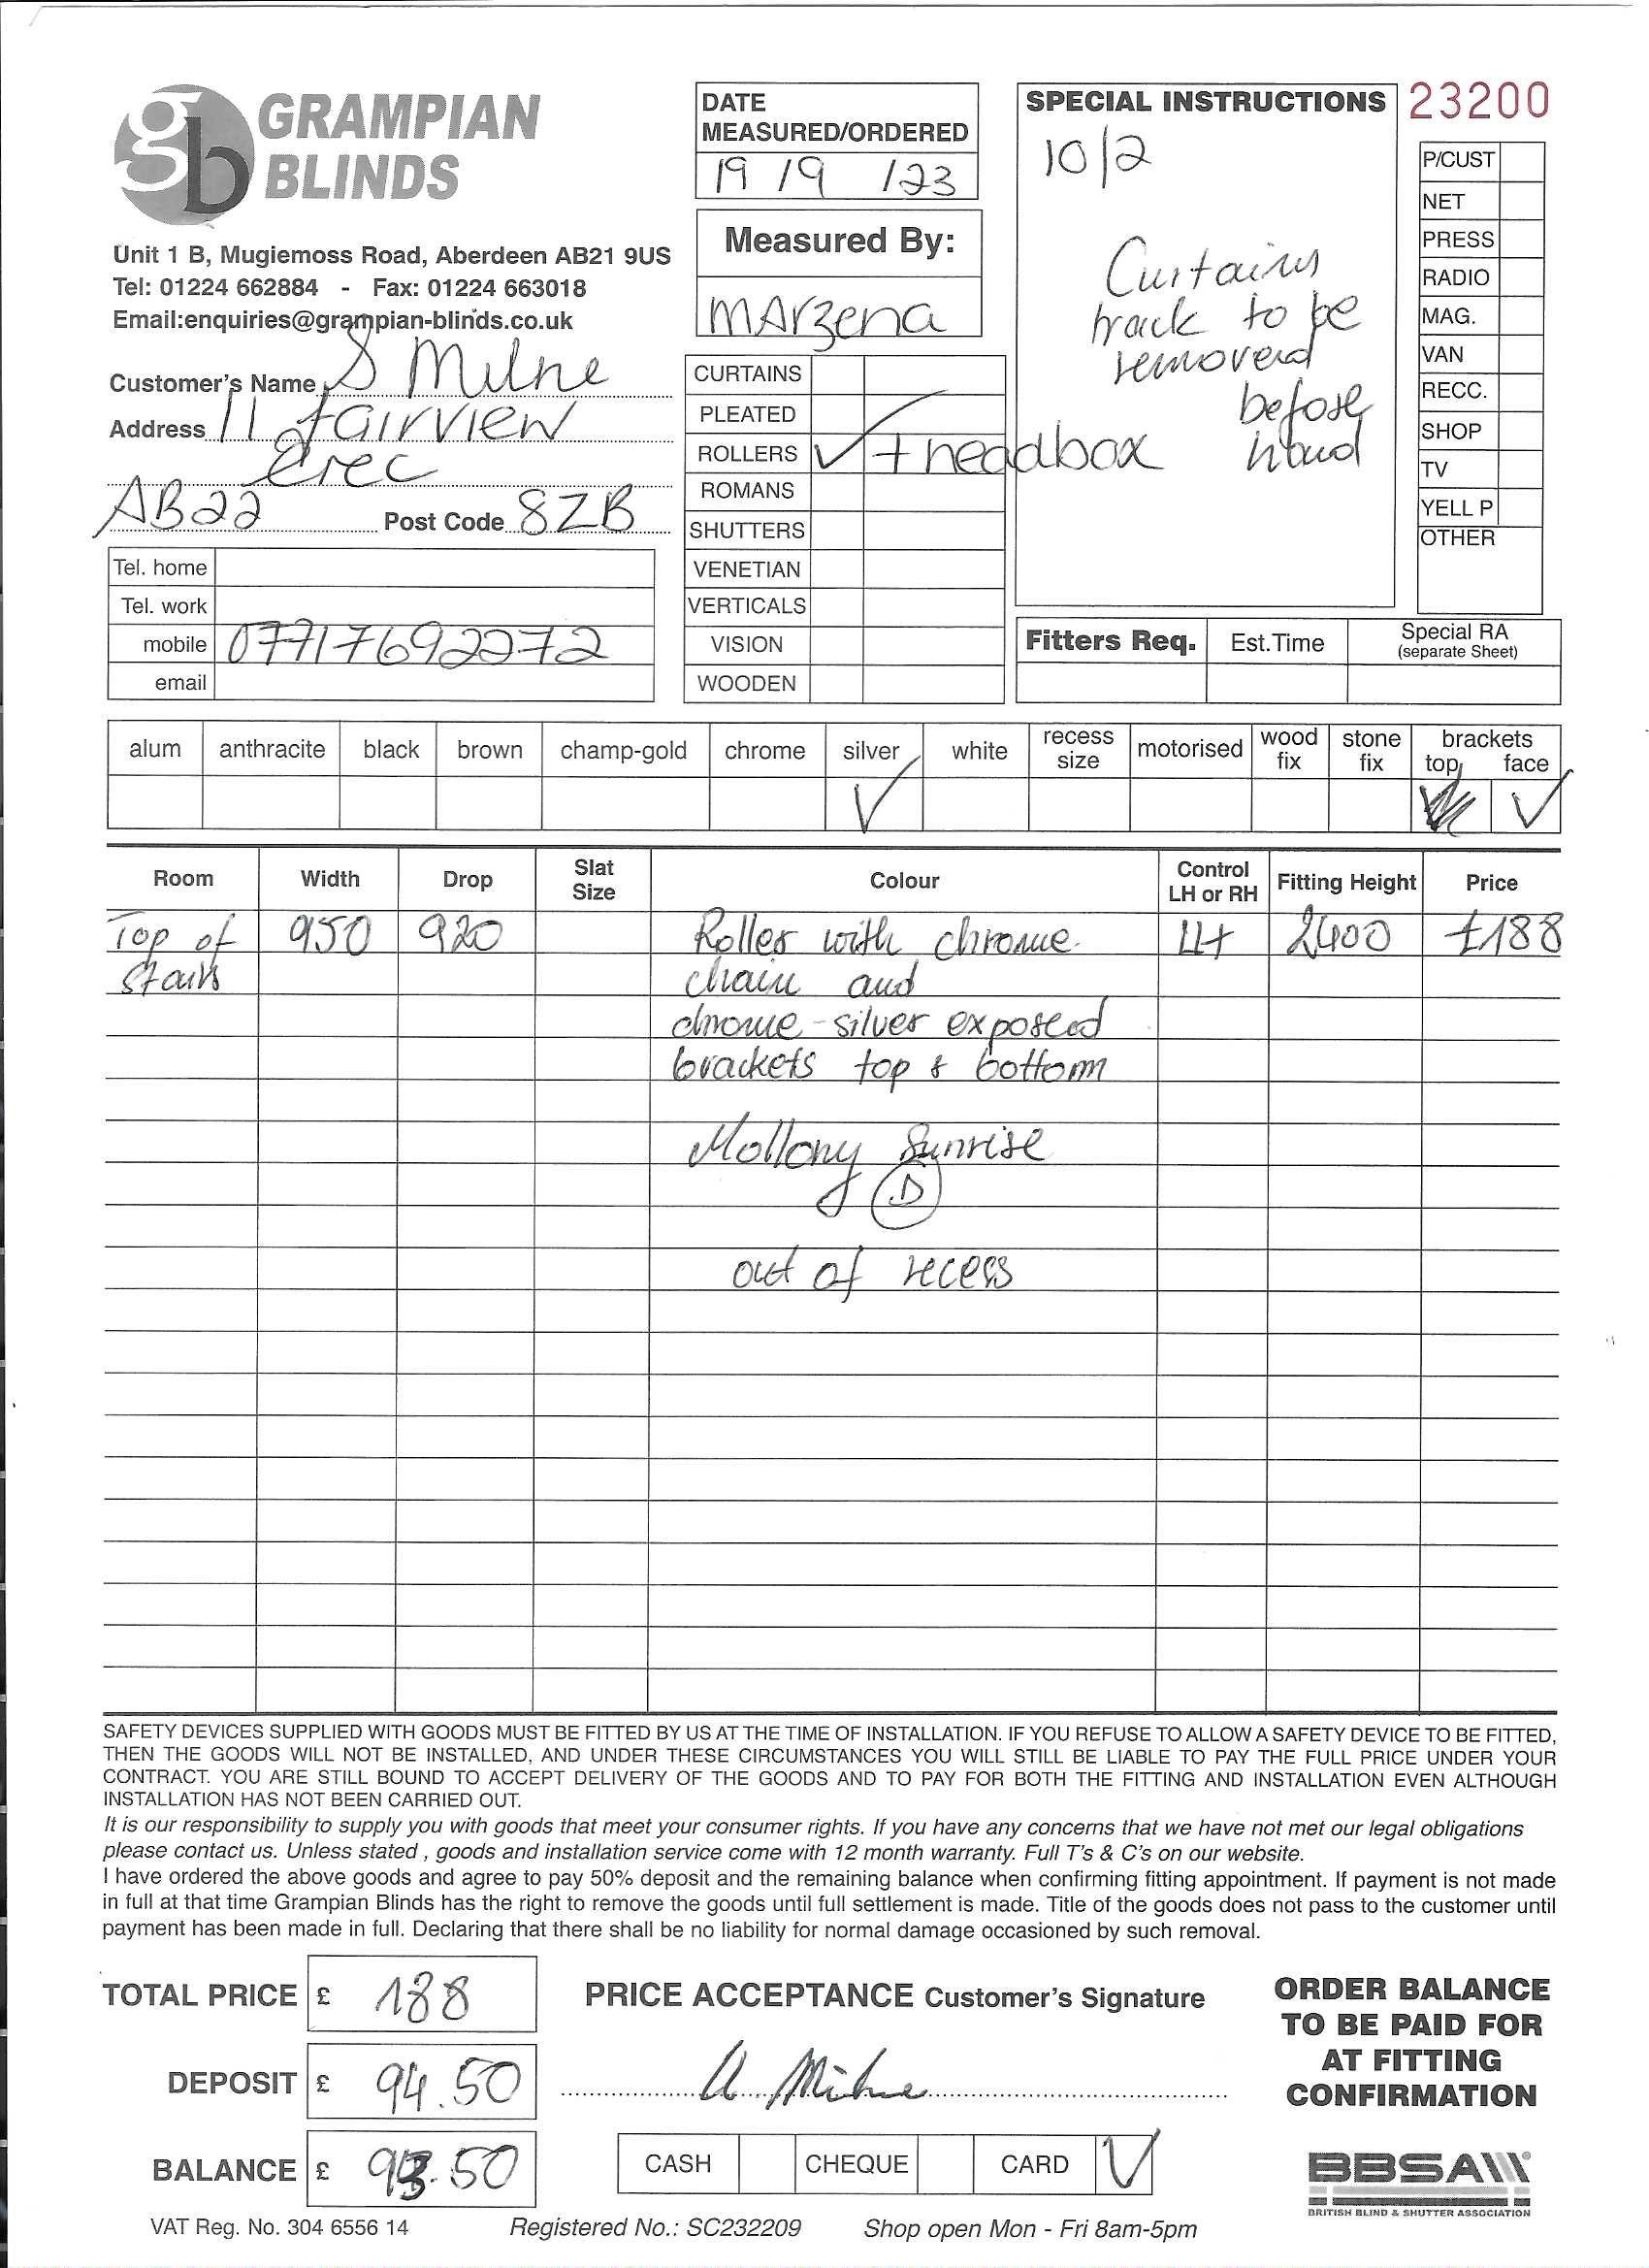 GRAMPIAN
BLINDS
Unit 1 B, Mugiemoss Road, Aberdeen AB21 9US
Tel: 01224 662884 - Fax: 01224 663018
Email:enquiries@grampian-blinds.co.uk
Customer's Name S Milne
Address 11 fairview
Crec
AB22 Post Code 8ZB
Tel. home
Tel. work
mobile 07717692272
email
DATE
MEASURED/ORDERED
19 /9 /23
Measured By:
MArzena
CURTAINS
PLEATED
ROLLERS ✓ + headbox
ROMANS
SHUTTERS
VENETIAN
VERTICALS
VISION
WOODEN
SPECIAL INSTRUCTIONS
10/2
Curtains
track to be
removed
before
hand
23200
P/CUST
NET
PRESS
RADIO
MAG.
VAN
RECC.
SHOP
TV
YELL P
OTHER
Fitters Req. Est.Time Special RA
(separate Sheet)
alum anthracite black brown champ-gold chrome silver white recess size motorised wood fix stone fix brackets top face
✓ ✓
Room Width Drop Slat Size Colour Control LH or RH Fitting Height Price
Top of 950 920 Roller with chrome LH 2400 £188
stairs chain and
chrome-silver exposed
brackets top & bottom
Mollony Sunrise
D
out of recess
SAFETY DEVICES SUPPLIED WITH GOODS MUST BE FITTED BY US AT THE TIME OF INSTALLATION. IF YOU REFUSE TO ALLOW A SAFETY DEVICE TO BE FITTED,
THEN THE GOODS WILL NOT BE INSTALLED, AND UNDER THESE CIRCUMSTANCES YOU WILL STILL BE LIABLE TO PAY THE FULL PRICE UNDER YOUR
CONTRACT. YOU ARE STILL BOUND TO ACCEPT DELIVERY OF THE GOODS AND TO PAY FOR BOTH THE FITTING AND INSTALLATION EVEN ALTHOUGH
INSTALLATION HAS NOT BEEN CARRIED OUT.
It is our responsibility to supply you with goods that meet your consumer rights. If you have any concerns that we have not met our legal obligations
please contact us. Unless stated , goods and installation service come with 12 month warranty. Full T's & C's on our website.
I have ordered the above goods and agree to pay 50% deposit and the remaining balance when confirming fitting appointment. If payment is not made
in full at that time Grampian Blinds has the right to remove the goods until full settlement is made. Title of the goods does not pass to the customer until
payment has been made in full. Declaring that there shall be no liability for normal damage occasioned by such removal.
TOTAL PRICE £ 188
DEPOSIT £ 94.50
BALANCE £ 93.50
PRICE ACCEPTANCE Customer's Signature
A Milne
CASH CHEQUE CARD ✓
ORDER BALANCE
TO BE PAID FOR
AT FITTING
CONFIRMATION
BBSA
BRITISH BLIND & SHUTTER ASSOCIATION
VAT Reg. No. 304 6556 14 Registered No.: SC232209 Shop open Mon - Fri 8am-5pm